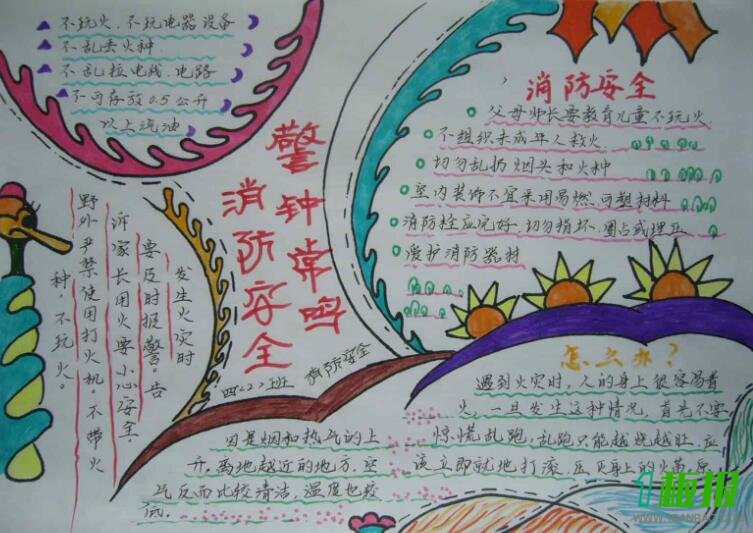 不玩火、不玩电器设备
不乱丢火种
不乱拉电线、电路
不可存放0.5公斤
以上汽油
警钟常鸣
消防安全
四〈2〉班
消防安全
消防安全
父母师长要教育儿童不玩火
不组织未成年人救火
切勿乱扔烟头和火种
室内装饰不宜采用易燃、可塑材料
消防栓应完好、切勿损坏、圈占或埋压
爱护消防器材
发生火灾时
要及时报警。告
诉家长用火要小心安全，
野外严禁使用打火机。不带火
种，不玩火。
因是烟和热气的上
升，离地越近的地方，空
气反而比较清洁，温度也较
低。
怎么办？
遇到火灾时，人的身上很容易着
火，一旦发生这种情况，首先不要
惊慌乱跑，乱跑只能越烧越旺，应
该立即就地打滚，压灭身上的火苗
板报